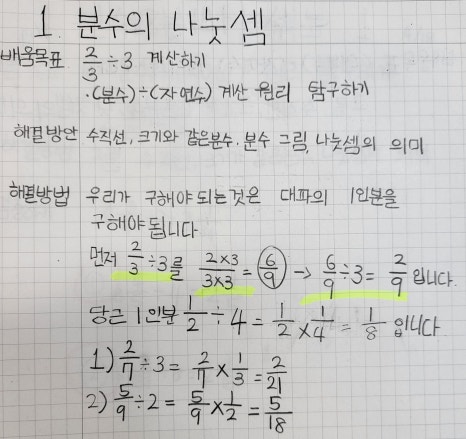 1. 분수의 나눗셈
배움목표 2/3 ÷3 계산하기
·(분수)÷(자연수) 계산 원리 탐구하기
해결방안 수직선, 크기와 같은분수. 분수 그림, 나눗셈의 의미
해결방법 우리가 구해야 되는것은 대파의 1인분을
구해야 됩니다
먼저 2/3 ÷3를 2×3/3×3 = 6/9 → 6/9 ÷3 = 2/9 입니다.
당근 1인분 1/2 ÷ 4 = 1/2 × 1/4 = 1/8 입니다
1) 2/7 ÷3 = 2/7 × 1/3 = 2/21
2) 5/9 ÷2 = 5/9 × 1/2 = 5/18